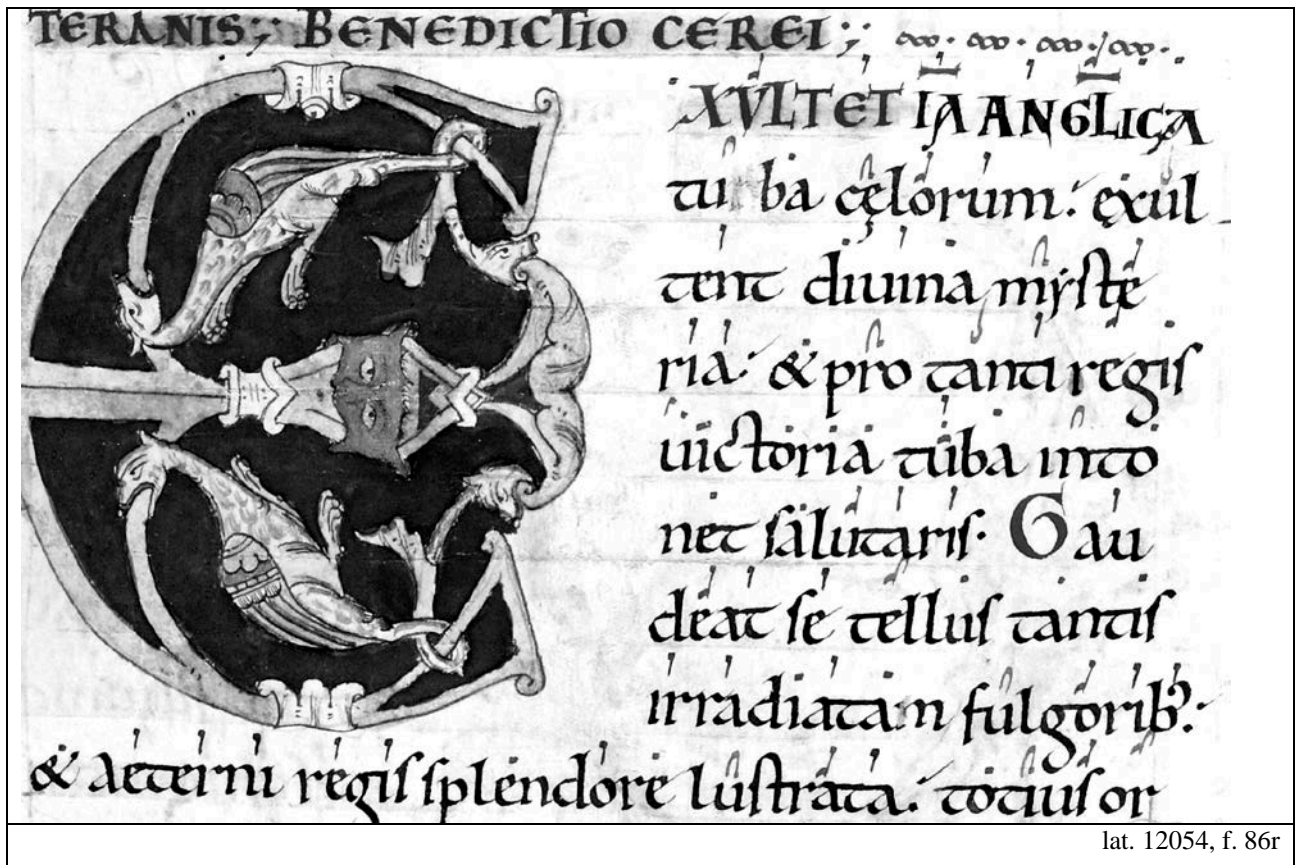 TERANIS; BENEDICTIO CEREI;
EXVLTET IA ANGLICA
turba cęlorum: exul
tent diuina myste
ria: & pro tanti regis
uictoria tuba into
net salutaris. Gau
deat se tellus tantis
irradiatam fulgorib:
& aeterni regis splendore lustrata. totius or
lat. 12054, f. 86r